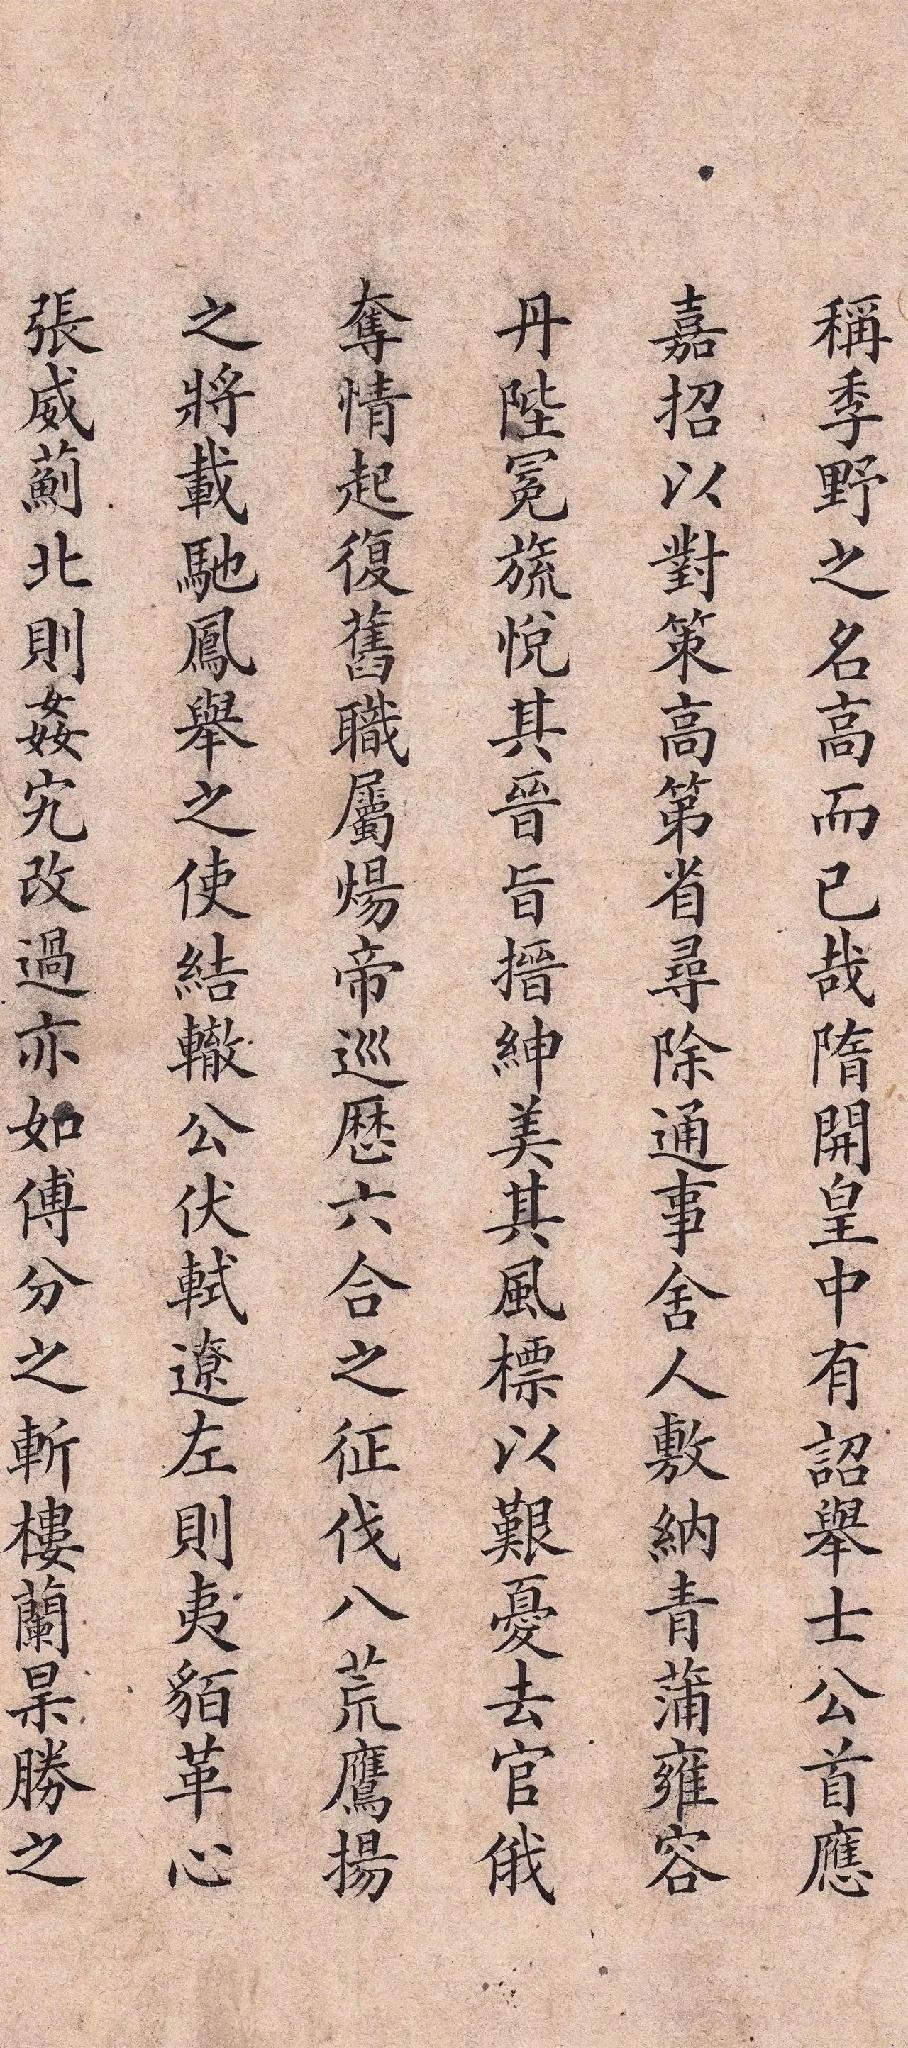 稱季野之名高而已哉隋開皇中有詔舉士公首應
嘉招以對策高第省尋除通事舍人敷納青蒲雍容
丹陛冕旒悅其晉旨搢紳美其風標以艱憂去官俄
奪情起復舊職屬煬帝巡歷六合之征伐八荒鷹揚
之將載馳鳳舉之使結轍公伏軾遼左則夷貊革心
張威薊北則姦宄改過亦如傅介之斬樓蘭暴勝之